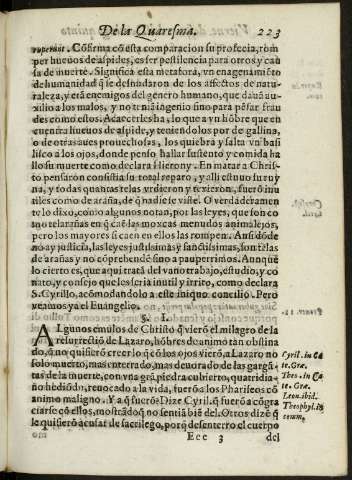 De la Quaresma. 223
ruperunt. Cõfirma cõ esta comparacion su profecia, rõm
per huevos de aspides, es ser pestilencia para otros y cau
sa de muerte. Significa esta metafora, vn enagenamiẽto
de humanidad q̃ se desnudaron de los affectos de natu
raleza, y erã enemigos del genero humano, que davã au-
xilio a los malos, y no teniã ingenio sino para pẽsar frau
des como estos. Acaecerles ha, lo que a vn hõbre que en
cuentra huevos de aspide, y teniendolos por de gallina,
o de otras aves provechosas, los quiebra y salta vn basi
lisco a los ojos, donde penso hallar sustento y comida ha
llo su muerte como declara Hierony. En matar a Chris-
to pensaron consistia su total reparo, y alli estuvo su ruy
na, y todas quantas telas vrdieron y texieron, fuerõ inu
tiles como de araña, de q̃ nadie se viste. O verdaderamen
te lo dixo, como algunos notan, por las leyes, que son co
mo telarañas en q̃ caẽ las moxcas menudos animalejos,
pero los mayores si caen en ellos las rompen. Ansi dõde
no ay justicia, las leyes justissimas y sanctissimas, son telas
de arañas y no cõprehendẽ sino a pauperrimos. Aunquẽ
lo cierto es, que aqui trata del vano trabajo, estudio, y co
nato, y consejo que les seria inutil y irrito, como declara
S. Cyrillo, acõmodandolo a este iniquo concilio. Pero
veamos ya el Euangelio.
§. I.
ALgunos emulos de Christo q̃ vierõ el milagro de la
resurrectiõ de Lazaro, hõbres de animo tan obstina
do, q̃ no quisierõ creer lo q̃ cõ los ojos vierõ, a Lazaro no
solo muerto, mas enterrado, mas devorado de las gargã-
tas de la muerte, con vna grã piedra cubierto, quatridia-
no hediõdo, revocado a la vida, fuerõ a los Phariseos cõ
animo maligno. Y a q̃ fuerõ? Dize Cyril. q̃ fuerõ a cõgra
ciarse cõ ellos, mostrãdo q̃ no sentiã biẽ del. Otros dizẽ q̃
le quisierõ acusar de sacrilego, porq̃ desenterro el cuerpo
Eee 3 del
Cyril. in Ca
te. Græ.
Theo. in Ca
te. Græ.
Leon. ibid.
Theophyl. in
comm.